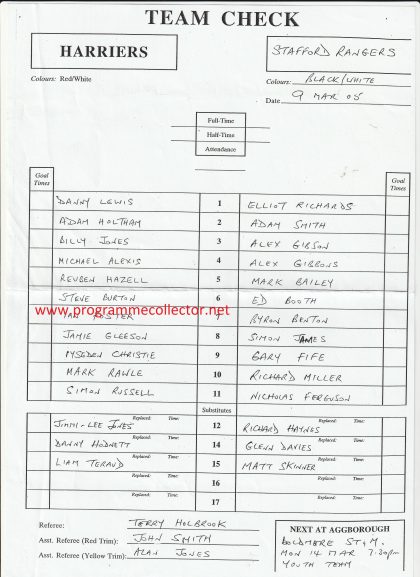 TEAM CHECK
HARRIERS
STAFFORD RANGERS
Colours: Red/White
Colours: BLACK/WHITE
Date 9 MAR 05
Full-Time
Half-Time
Attendance
Goal Times
Goal Times
DANNY LEWIS 1 ELLIOT RICHARDS
ADAM HOLTHAM 2 ADAM SMITH
BILLY JONES 3 ALEX GIBSON
MICHAEL ALEXIS 4 ALEX GIBBONS
REUBEN HAZELL 5 MARK BAILEY
STEVE BURTON 6 ED BOOTH
www.programmecollector.net
FOSTER 7 BYRON BENTON
JAMIE GLEESON 8 SIMON JAMES
CHRISTIE 9 GARY FIFE
MARK RAWLE 10 RICHARD MILLER
SIMON RUSSELL 11 NICHOLAS FERGUSON
Substitutes
Replaced: Time: Replaced: Time:
JIMMI-LEE JONES 12 RICHARD HAYNES
Replaced: Time: Replaced: Time:
DANNY HODNETT 14 GLENN DAVIES
Replaced: Time: Replaced: Time:
LIAM 15 MATT SKINNER
Replaced: Time: Replaced: Time:
16
Replaced: Time: Replaced: Time:
17
Referee: TERRY HOLBROOK
Asst. Referee (Red Trim): JOHN SMITH
Asst. Referee (Yellow Trim): ALAN JONES
NEXT AT AGGBOROUGH
BOLDMERE ST. M.
MON 14 MAR 7.30pm
YOUTH TEAM